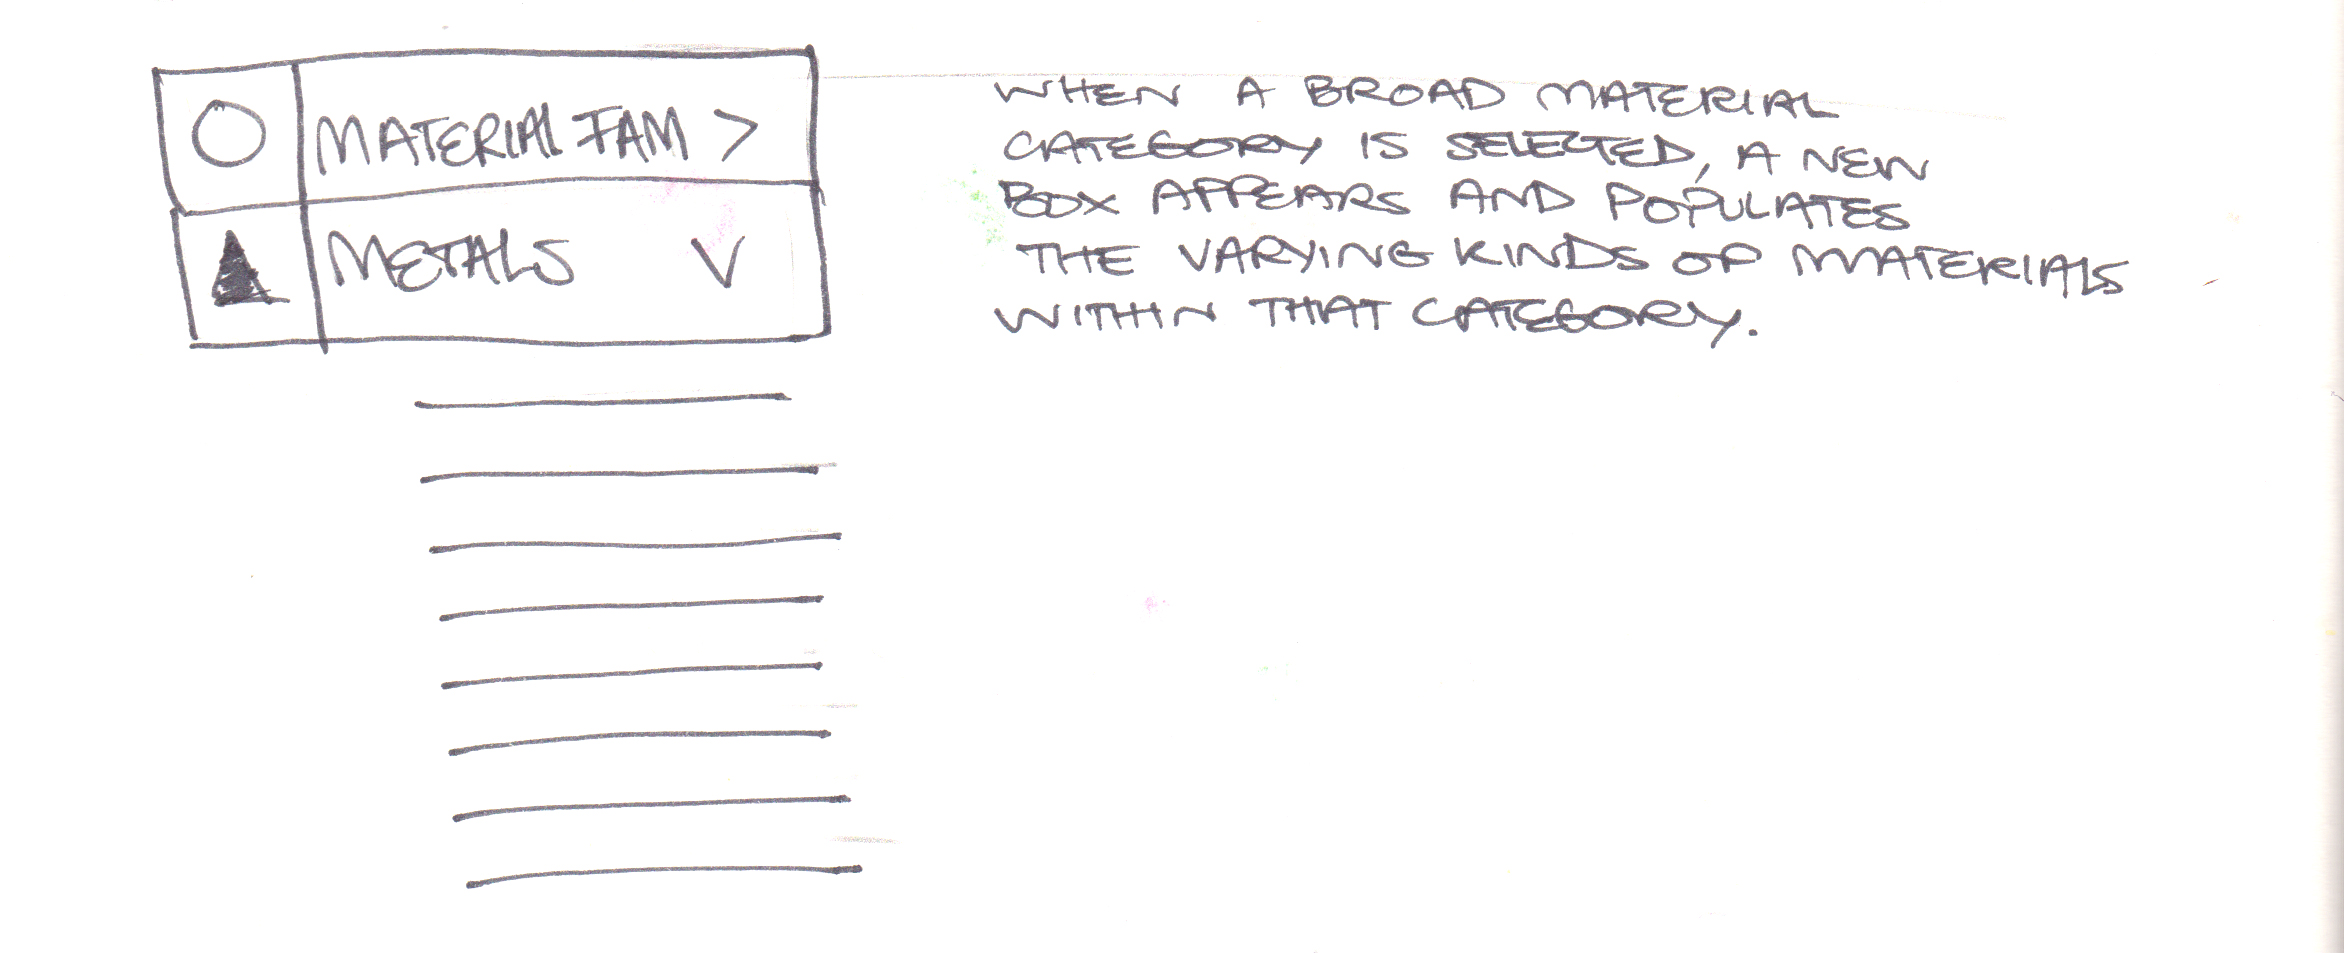 MATERIAL FAM >
METALS V
WHEN A BROAD MATERIAL
CATEGORY IS SELECTED, A NEW
BOX APPEARS AND POPULATES
THE VARYING KINDS OF MATERIALS
WITHIN THAT CATEGORY.